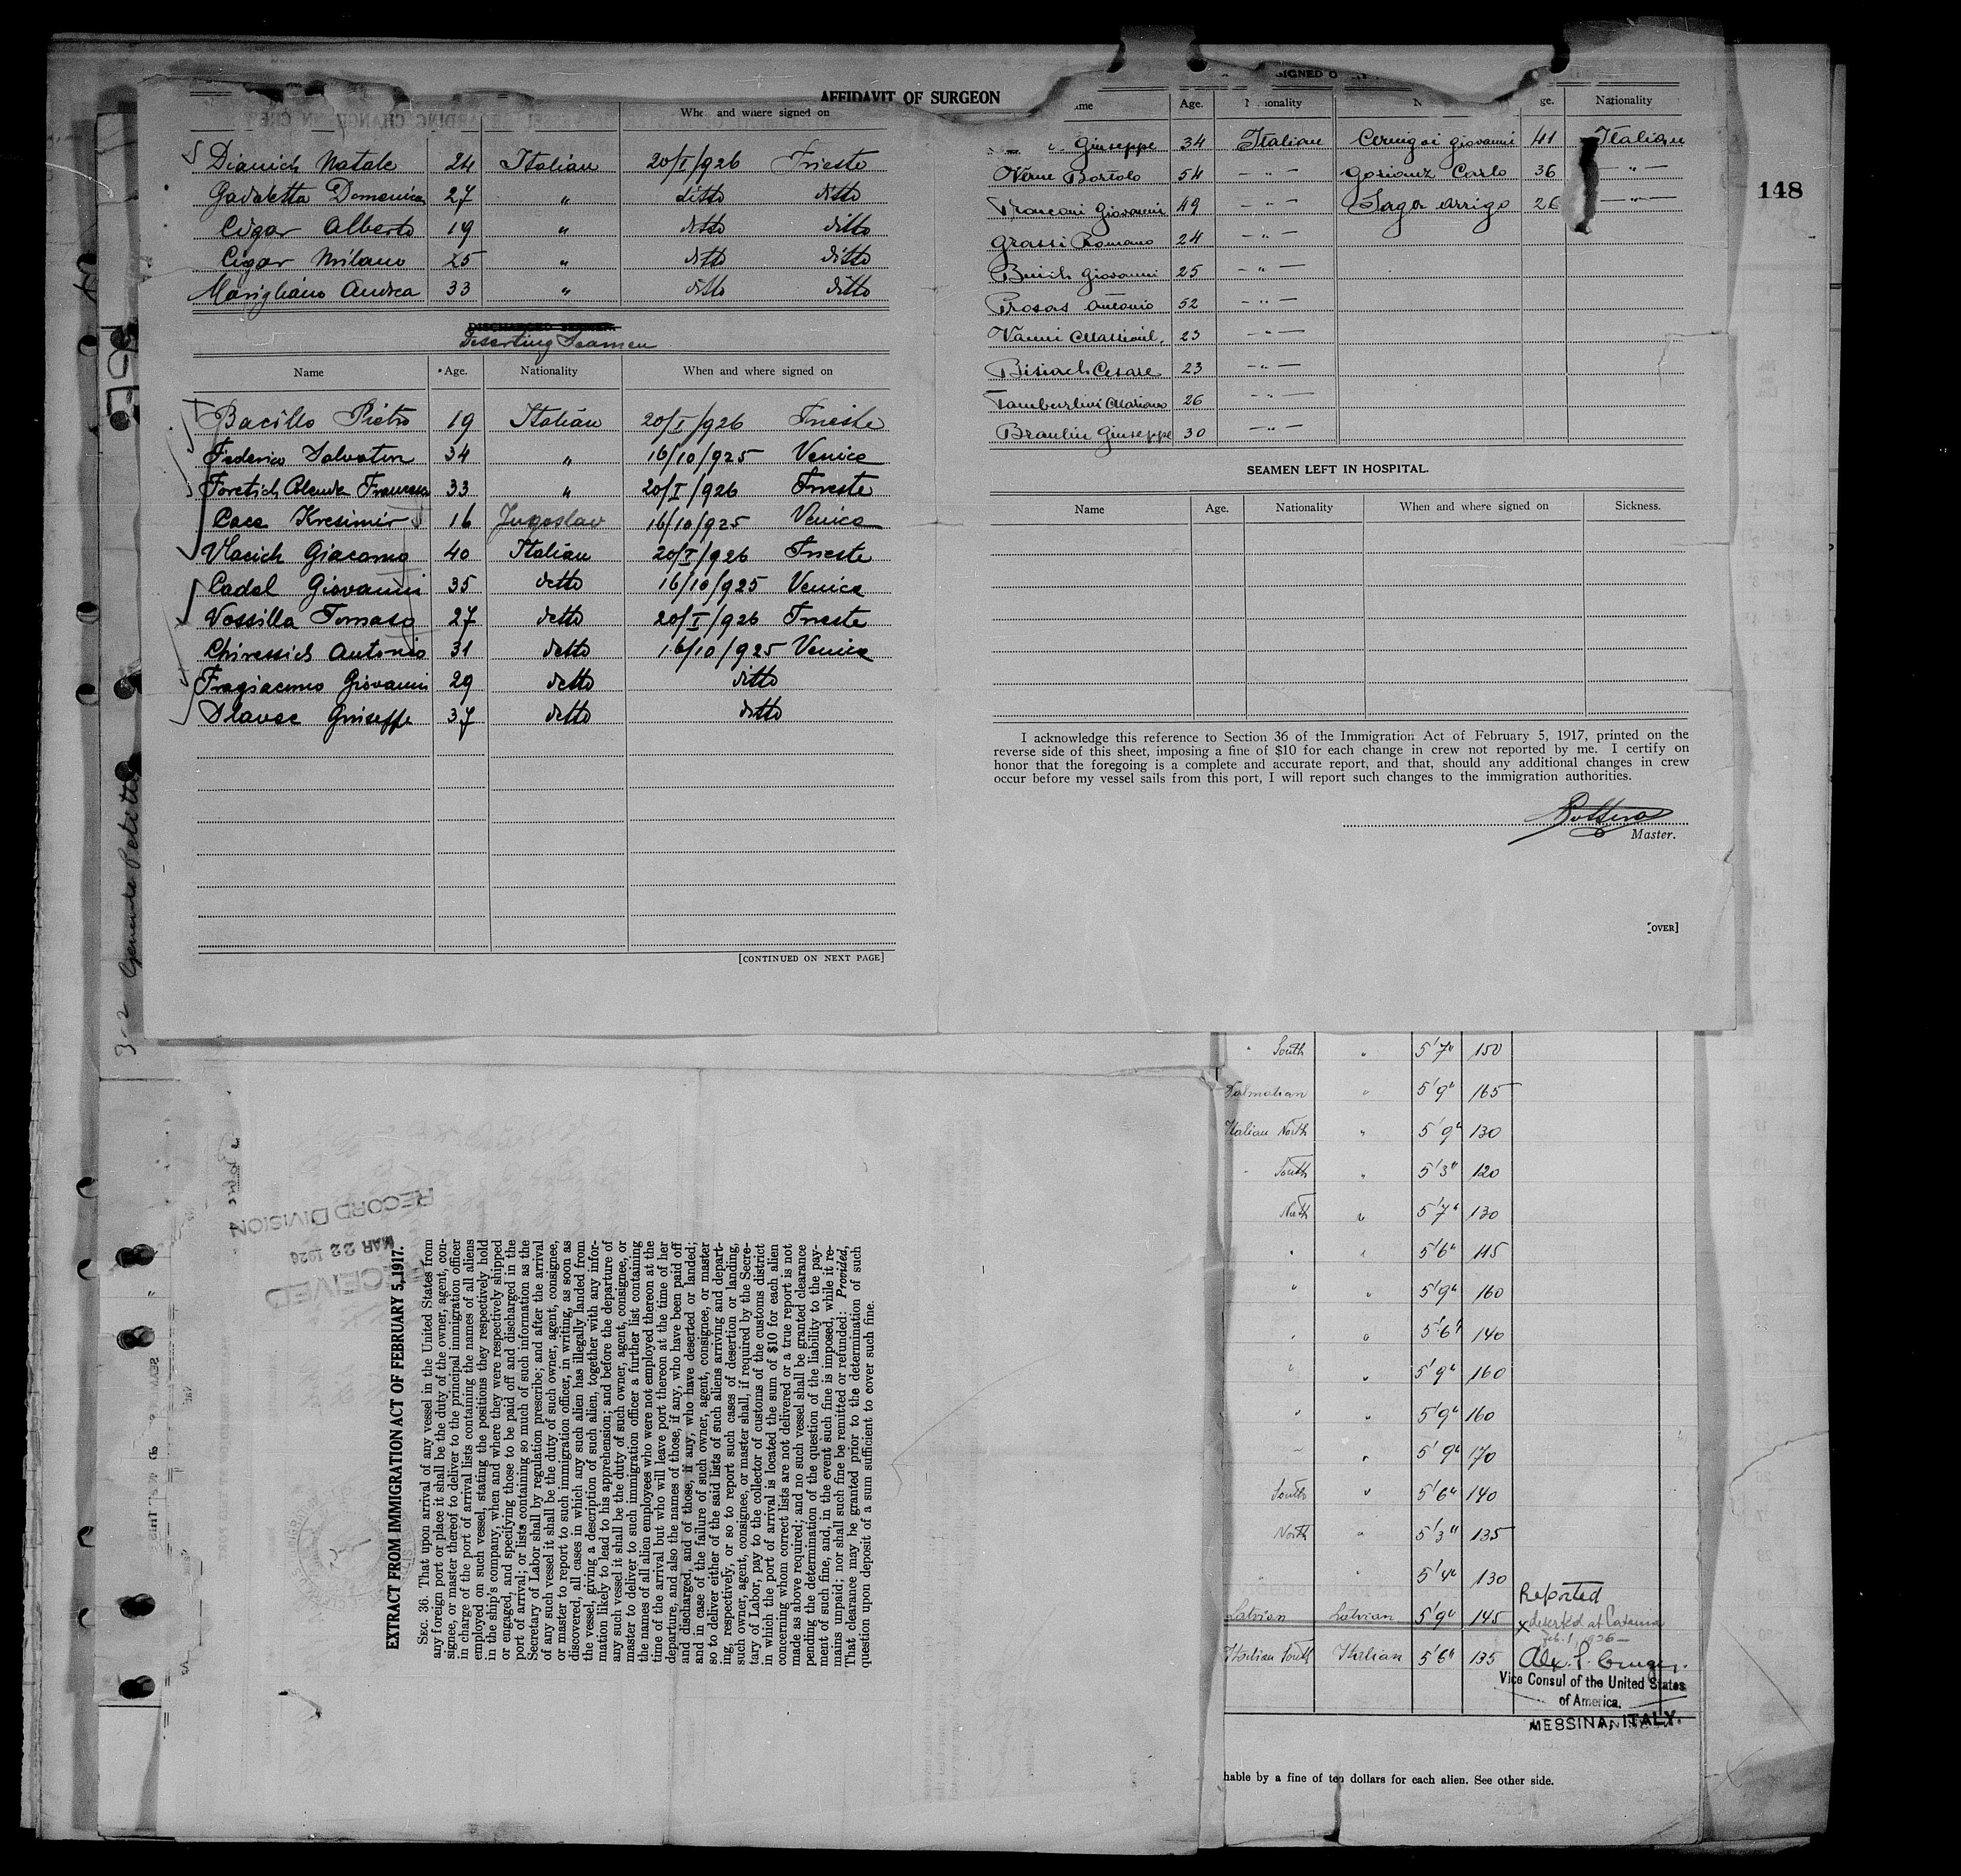 AFFIDAVIT OF SURGEON
148
and where signed on
Dianich Natale 24 Italian 20/I/926 Trieste
Gadaletta Domenico 27 " ditto ditto
Cigar Alberto 19 " ditto ditto
Cigar Milano 25 " ditto ditto
Marigliano Andrea 33 " ditto ditto
DISCHARGED SEAMEN.
Deserting Seamen
Name Age. Nationality When and where signed on
Bacillo Pietro 19 Italian 20/I/926 Trieste
Federico Salvator 34 " 16/10/925 Venice
Foretich 33 " 20/I/926 Trieste
Cace Kresimir 16 Jugoslav 16/10/925 Venice
Vlacich Giacomo 40 Italian 20/I/926 Trieste
Cadel Giovanni 35 detto 16/10/925 Venice
Vessilla Tomaso 27 detto 20/I/926 Trieste
Chiressich Antonio 31 detto 16/10/925 Venice
Fragiacomo Giovanni 29 detto ditto
Slavec Giuseppe 37 detto ditto
[CONTINUED ON NEXT PAGE]
SIGNED
Age. Nationality
Giuseppe 34 Italian Cernigoi Giovanni 41 Italian
Bortolo 54 — " — Gorianz Carlo 36 — " —
Tronconi Giovanni 49 — " — Saga Arrigo 26 — " —
Grassi Romano 24 — " —
Giovanni 25 — " —
Prosas Antonio 52 — " —
Vanni 23 — " —
Bisiach Cesare 23 — " —
Tamburlini Mariano 26 — " —
Braulin Giuseppe 30 — " —
SEAMEN LEFT IN HOSPITAL.
Name Age. Nationality When and where signed on Sickness.
I acknowledge this reference to Section 36 of the Immigration Act of February 5, 1917, printed on the
reverse side of this sheet, imposing a fine of $10 for each change in crew not reported by me. I certify on
honor that the foregoing is a complete and accurate report, and that, should any additional changes in crew
occur before my vessel sails from this port, I will report such changes to the immigration authorities.
Master.
[OVER]
RECEIVED
MAR 22 1926
RECORD DIVISION
EXTRACT FROM IMMIGRATION ACT OF FEBRUARY 5, 1917.
SEC. 36. That upon arrival of any vessel in the United States from
any foreign port or place it shall be the duty of the owner, agent, con-
signee, or master thereof to deliver to the principal immigration officer
in charge of the port of arrival lists containing the names of all aliens
employed on such vessel, stating the positions they respectively hold
in the ship's company, when and where they were respectively shipped
or engaged, and specifying those to be paid off and discharged in the
port of arrival; or lists containing so much of such information as the
Secretary of Labor shall by regulation prescribe; and after the arrival
of any such vessel it shall be the duty of such owner, agent, consignee,
or master to report to such immigration officer, in writing, as soon as
discovered, all cases in which any such alien has illegally landed from
the vessel, giving a description of such alien, together with any infor-
mation likely to lead to his apprehension; and before the departure of
any such vessel it shall be the duty of such owner, agent, consignee, or
master to deliver to such immigration officer a further list containing
the names of all alien employees who were not employed thereon at the
time of the arrival but who will leave port thereon at the time of her
departure, and also the names of those, if any, who have been paid off
and discharged, and of those, if any, who have deserted or landed;
and in case of the failure of such owner, agent, consignee, or master
so to deliver either of the said lists of such aliens arriving and depart-
ing, respectively, or so to report such cases of desertion or landing,
such owner, agent, consignee, or master shall, if required by the Secre-
tary of Labor, pay to the collector of customs of the customs district
in which the port of arrival is located the sum of $10 for each alien
concerning whom correct lists are not delivered or a true report is not
made as above required; and no such vessel shall be granted clearance
pending the determination of the question of the liability to the pay-
ment of such fine, and, in the event such fine is imposed, while it re-
mains unpaid; nor shall such fine be remitted or refunded: Provided,
That clearance may be granted prior to the determination of such
question upon deposit of a sum sufficient to cover such fine.
" South " 5'7" 150
Dalmatian " 5'9" 165
Italian North " 5'9" 130
" South " 5'3" 120
North " 5'7" 130
" " 5'6" 115
" " 5'9" 160
" " 5'6" 140
" " 5'9" 160
" " 5'9" 160
" " 5'9" 170
South " 5'6" 140
North " 5'3" 135
" " 5'4" 130
Reported
Latvian Latvian 5'9" 145 x deserted at Catania
Feb. 1, 1926 —
Italian South Italian 5'6" 135
Vice Consul of the United States
of America.
MESSINA, ITALY.
hable by a fine of ten dollars for each alien. See other side.